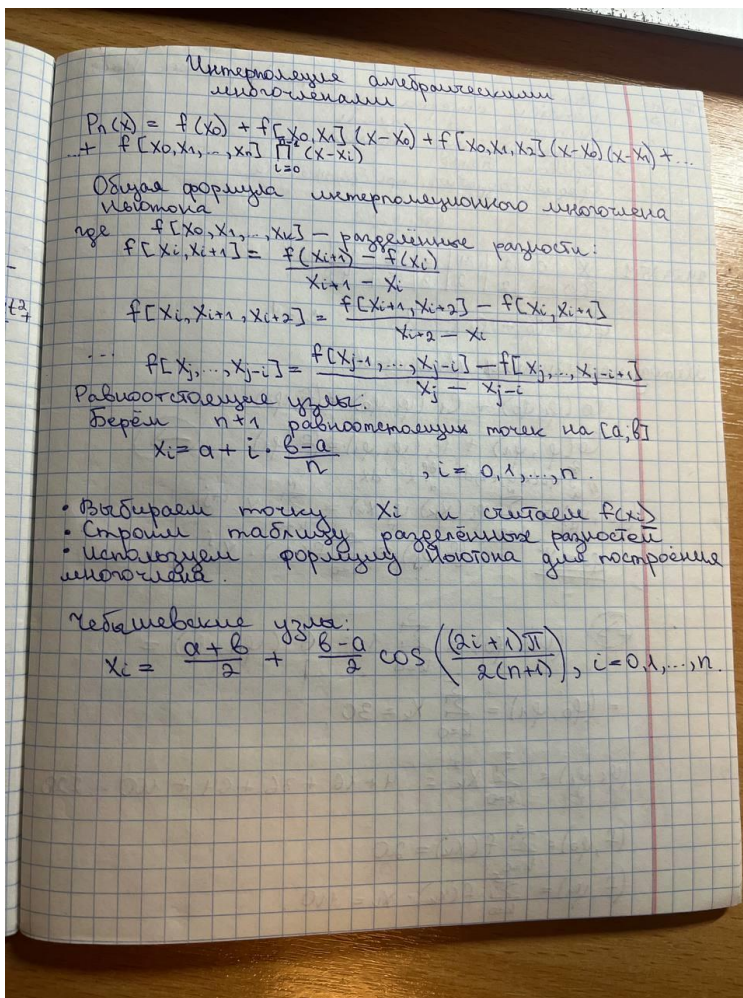 Интерполяция алгебраическими
многочленами
Pn(x) = f(x0) + f[x0,x1](x-x0) + f[x0,x1,x2](x-x0)(x-x1) + ...
...+ f[x0,x1,...,xn] ∏_{i=0}^{n-1} (x-xi)
Общая формула интерполяционного многочлена
Ньютона
где f[x0,x1,...,xk] – разделённые разности:
f[xi,xi+1] = (f(xi+1) – f(xi)) / (xi+1 – xi)
f[xi,xi+1,xi+2] = (f[xi+1,xi+2] – f[xi,xi+1]) / (xi+2 – xi)
...
f[xj,...,xj-i] = (f[xj-1,...,xj-i] – f[xj,...,xj-i+1]) / (xj – xj-i)
Равноотстоящие узлы:
Берём n+1 равноотстоящих точек на [a;b]
xi = a + i · (b-a)/n , i = 0,1,...,n.
· Выбираем точку xi и считаем f(xi)
· Строим таблицу разделённых разностей
· Используем формулу Ньютона для построения
многочлена.
Чебышевские узлы:
xi = (a+b)/2 + (b-a)/2 cos((2i+1)π / 2(n+1)), i=0,1,...,n.